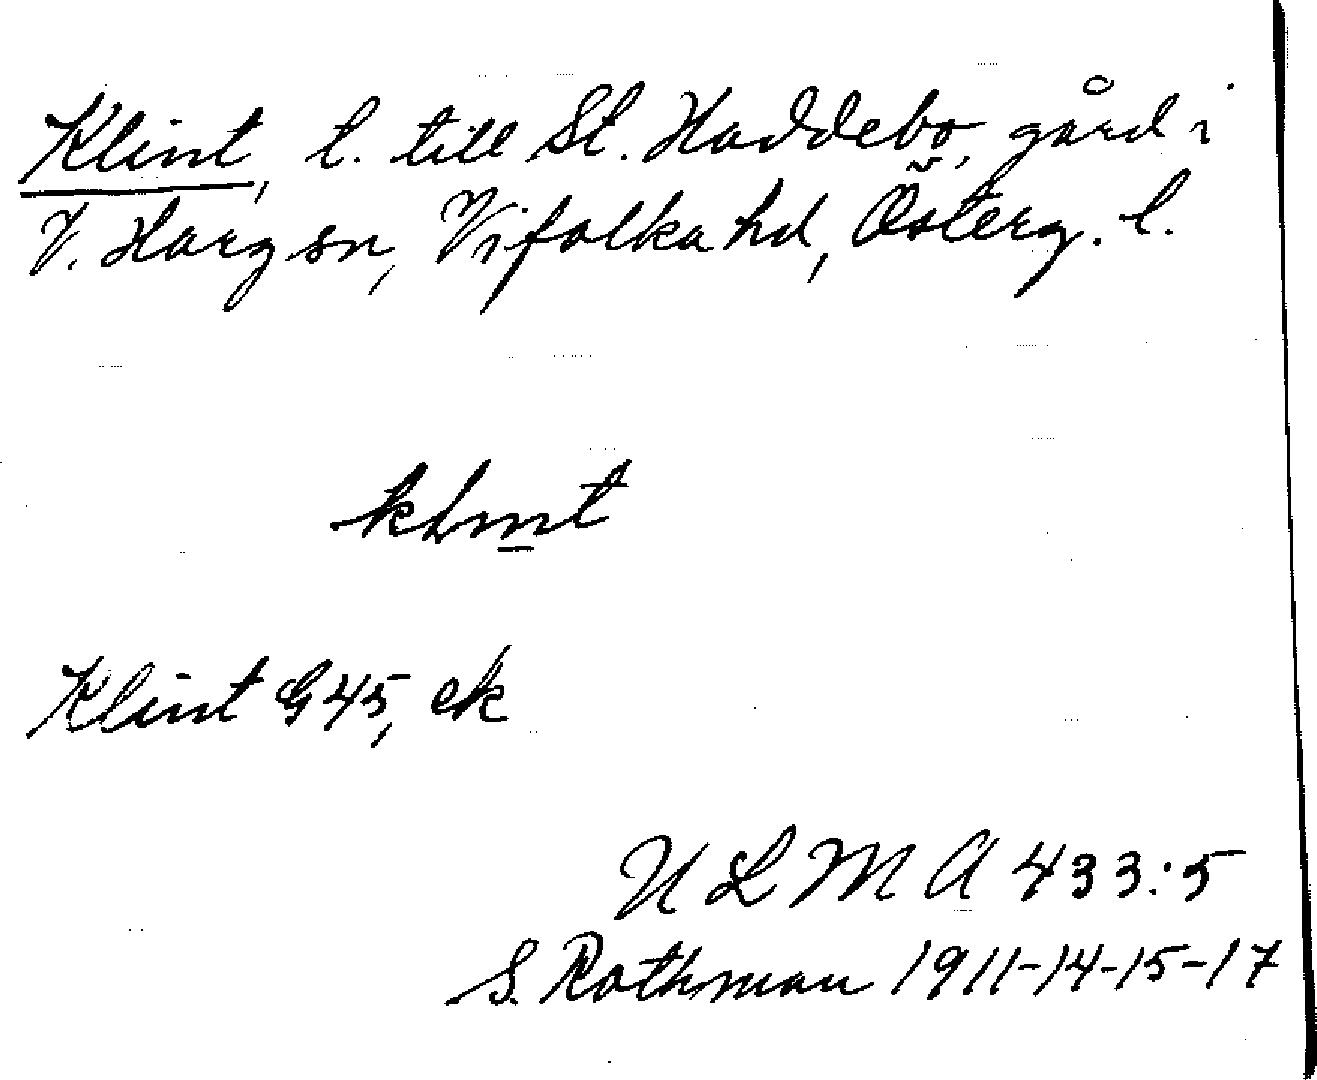 Klint, l. till St. Haddebo, gård i
V. Harg sn, Vifolka hd, Österg. l.
Klint G45, ek
ULMA 433:5
S. Rothman 1911-14-15-17